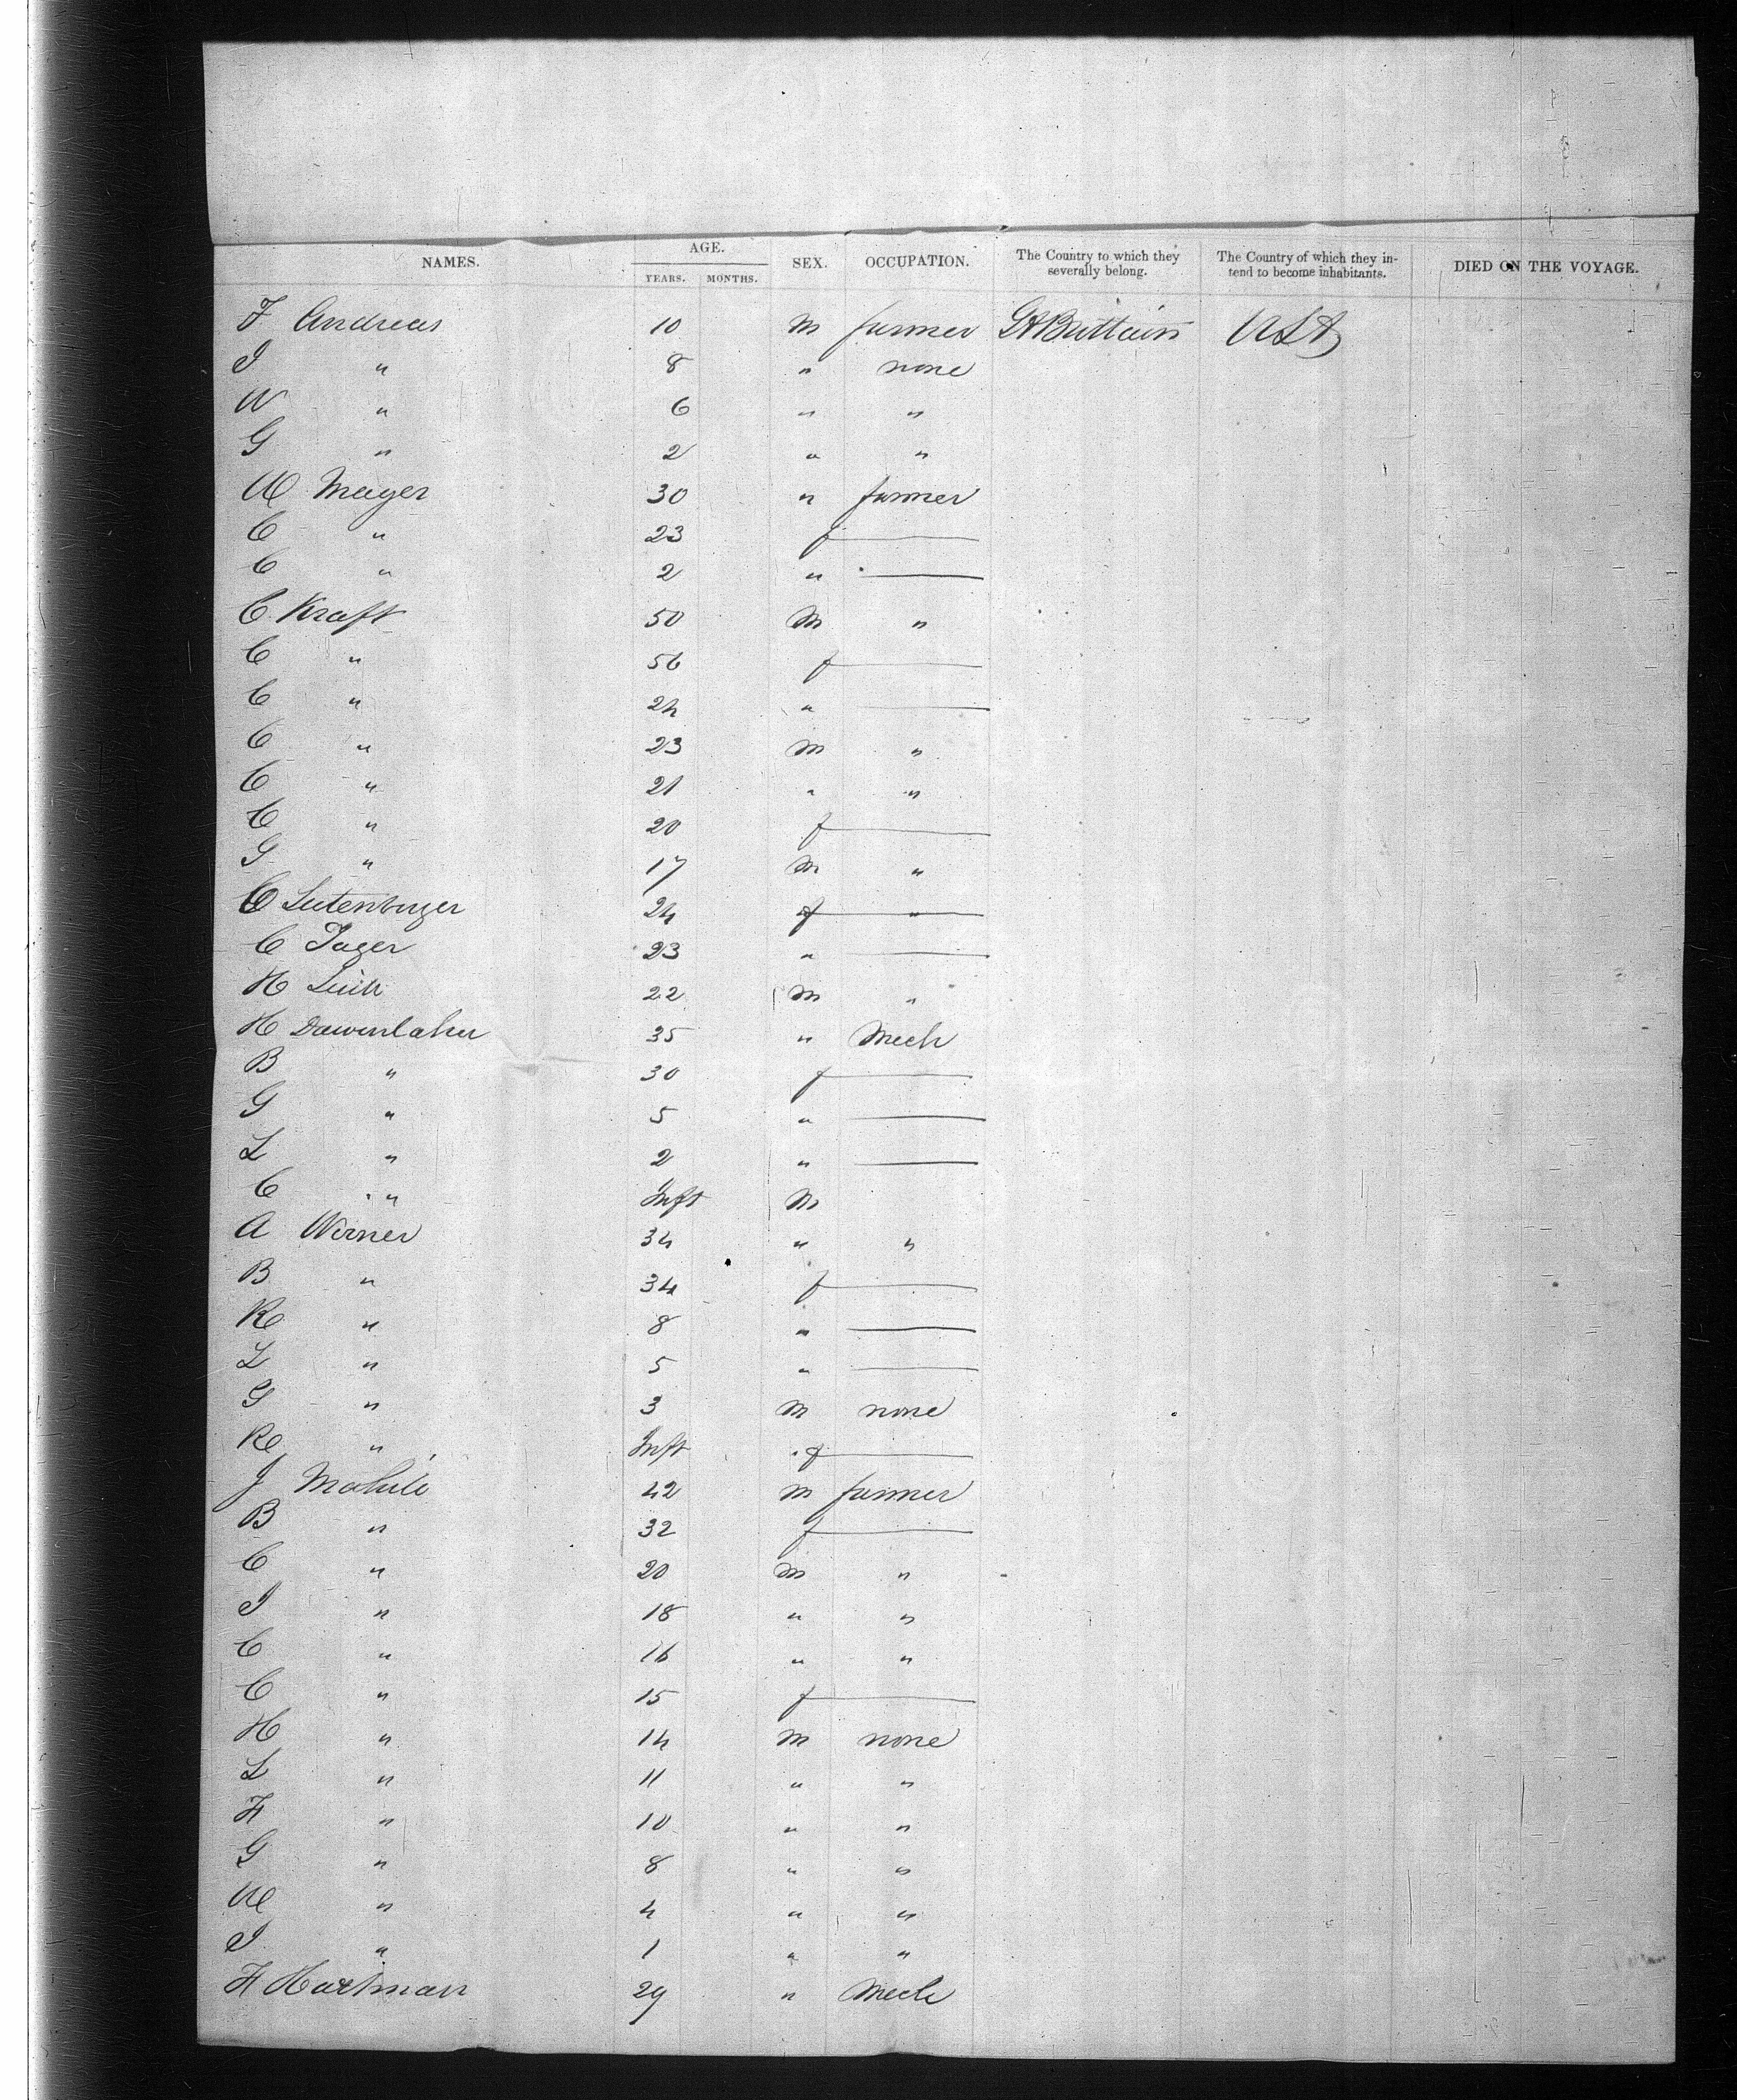 NAMES. AGE. SEX. OCCUPATION. The Country to which they severally belong. The Country of which they intend to become inhabitants. DIED ON THE VOYAGE.
YEARS. MONTHS.
F Andreas 10 m farmer Gt Brittain USA
J " 8 " none
W " 6 " "
G " 2 " "
M Mayer 30 " farmer
C " 23 f
C " 2 "
C. Kraft 50 m "
C " 56 f
C " 24 "
C " 23 m "
C " 21 " "
C " 20 f
G " 17 m "
C 24 f "
C Jager 23 "
H 22 m "
H 35 " Mech
B " 30 f
G " 5 "
L " 2 "
C " Inft m
A Werner 34 " "
B " 34 f
R " 8 "
L " 5 "
G " 3 m none
R " Inft f
J 42 m farmer
B " 32 f
C " 20 m "
J " 18 " "
C " 16 " "
C " 15 f
H " 14 m none
L " 11 " "
F " 10 " "
G " 8 " "
M " 4 " "
J " 1 " "
F Hartman 29 " Mech